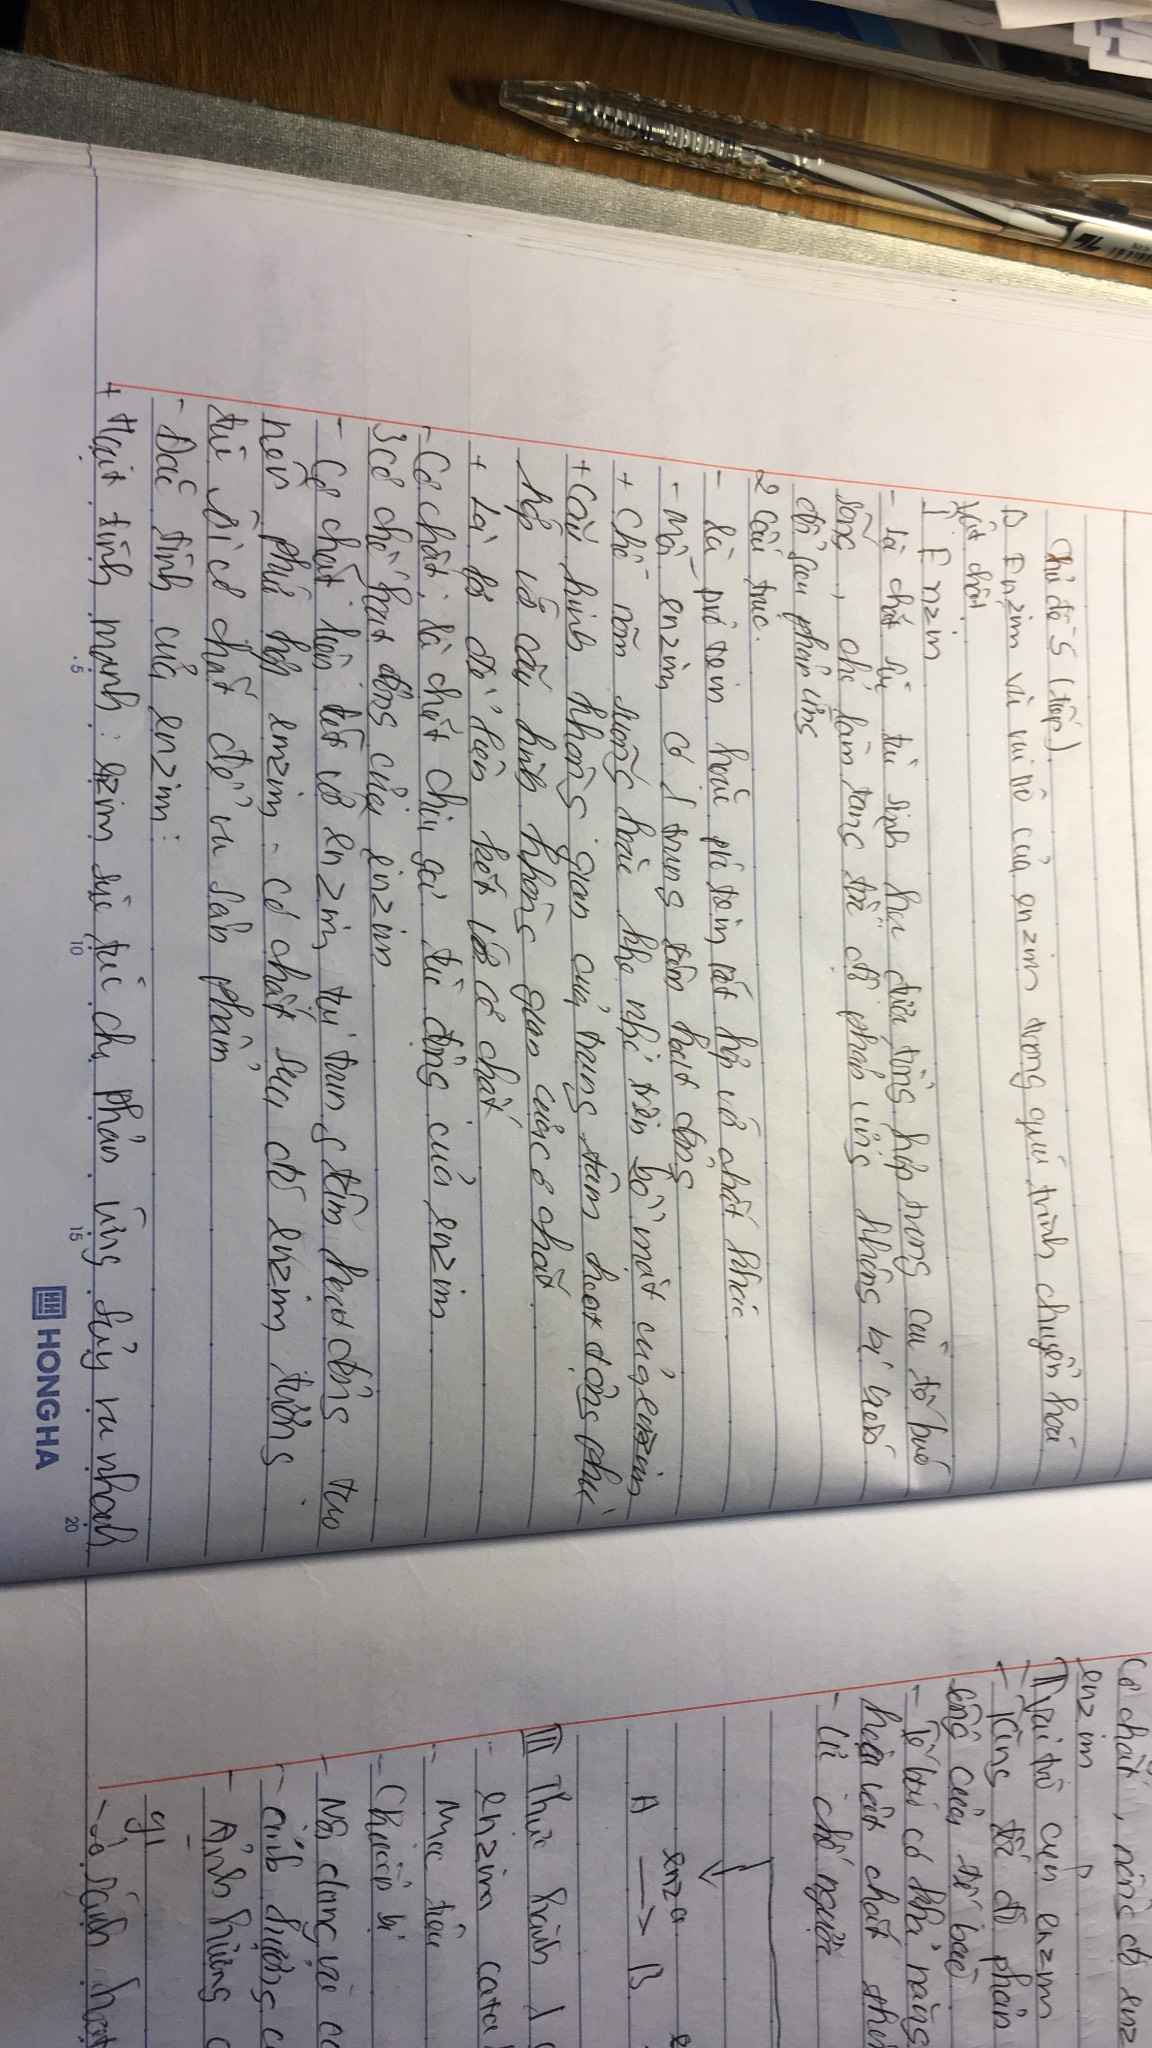 Chủ đề 5 (tiếp)
B Enzim và vai trò của enzim trong quá trình chuyển hoá
vật chất
I Enzim
- là chất xúc tác sinh học được tổng hợp trong các tế bào
sống, chỉ làm tăng tốc độ phản ứng không bị biến
đổi sau phản ứng
2 Cấu trúc.
- là prôtein hoặc prôtein kết hợp với chất khác
- Mỗi enzim có 1 trung tâm hoạt động
+ Chỗ lõm xuống hoặc khe nhỏ trên bề mặt của enzim
+ Cấu hình không gian của trung tâm hoạt động phù
hợp với cấu hình không gian của cơ chất
+ Là nơi để liên kết với cơ chất
- Cơ chất: là chất chịu sự tác động của enzim
3 Cơ chế hoạt động của enzim
- Cơ chất liên kết với enzim tại trung tâm hoạt động tạo
nên phức hợp enzim - cơ chất sau đó enzim tương
tác với cơ chất để ra sản phẩm
- Đặc tính của enzim:
+ Hoạt tính mạnh: ezim xúc tác cho phản ứng xảy ra nhanh
5 10 15 20
HONG HA
Cơ chất, nồng độ enz
enzim
II Vai trò của enzim
- Tăng tốc độ phản
sống của tế bào
- Tế bào có khả năng
hoá vật chất
- ức chế ngược
enza
A → B
III Thực hành 1
- enzim cata
- Mục tiêu
- Chuẩn bị
- Nội dung và c
- Ảnh hưởng c